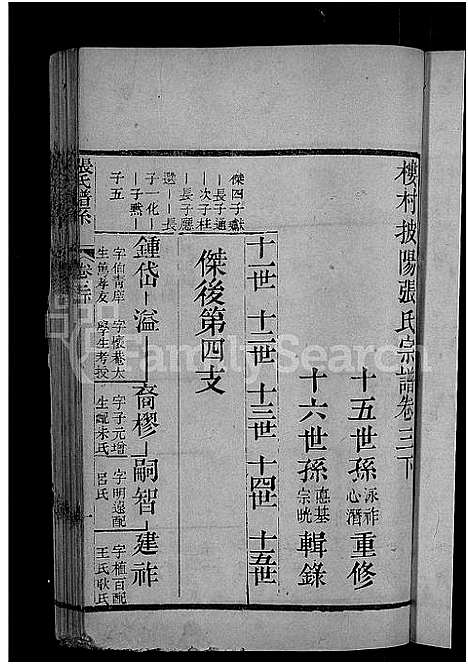 樓村披陽張氏宗譜卷三下
十五世孫 泳祚 心潛 重修
十六世孫 憲基 宗晄 輯錄
十一世 十二世 十三世 十四世 十五世
傑後第四支
傑四子嶽
長子通
次子柱
長子應
選 長
子一化
子熏
子五
鍾岱 溢 裔樛 嗣智 建祚
字伯青庠生篤孝友
字懷菴太學生考授
字子元增生配朱氏
字明遠配呂氏
字植百配王氏耿氏
張氏譜系 卷三
FamilySearch